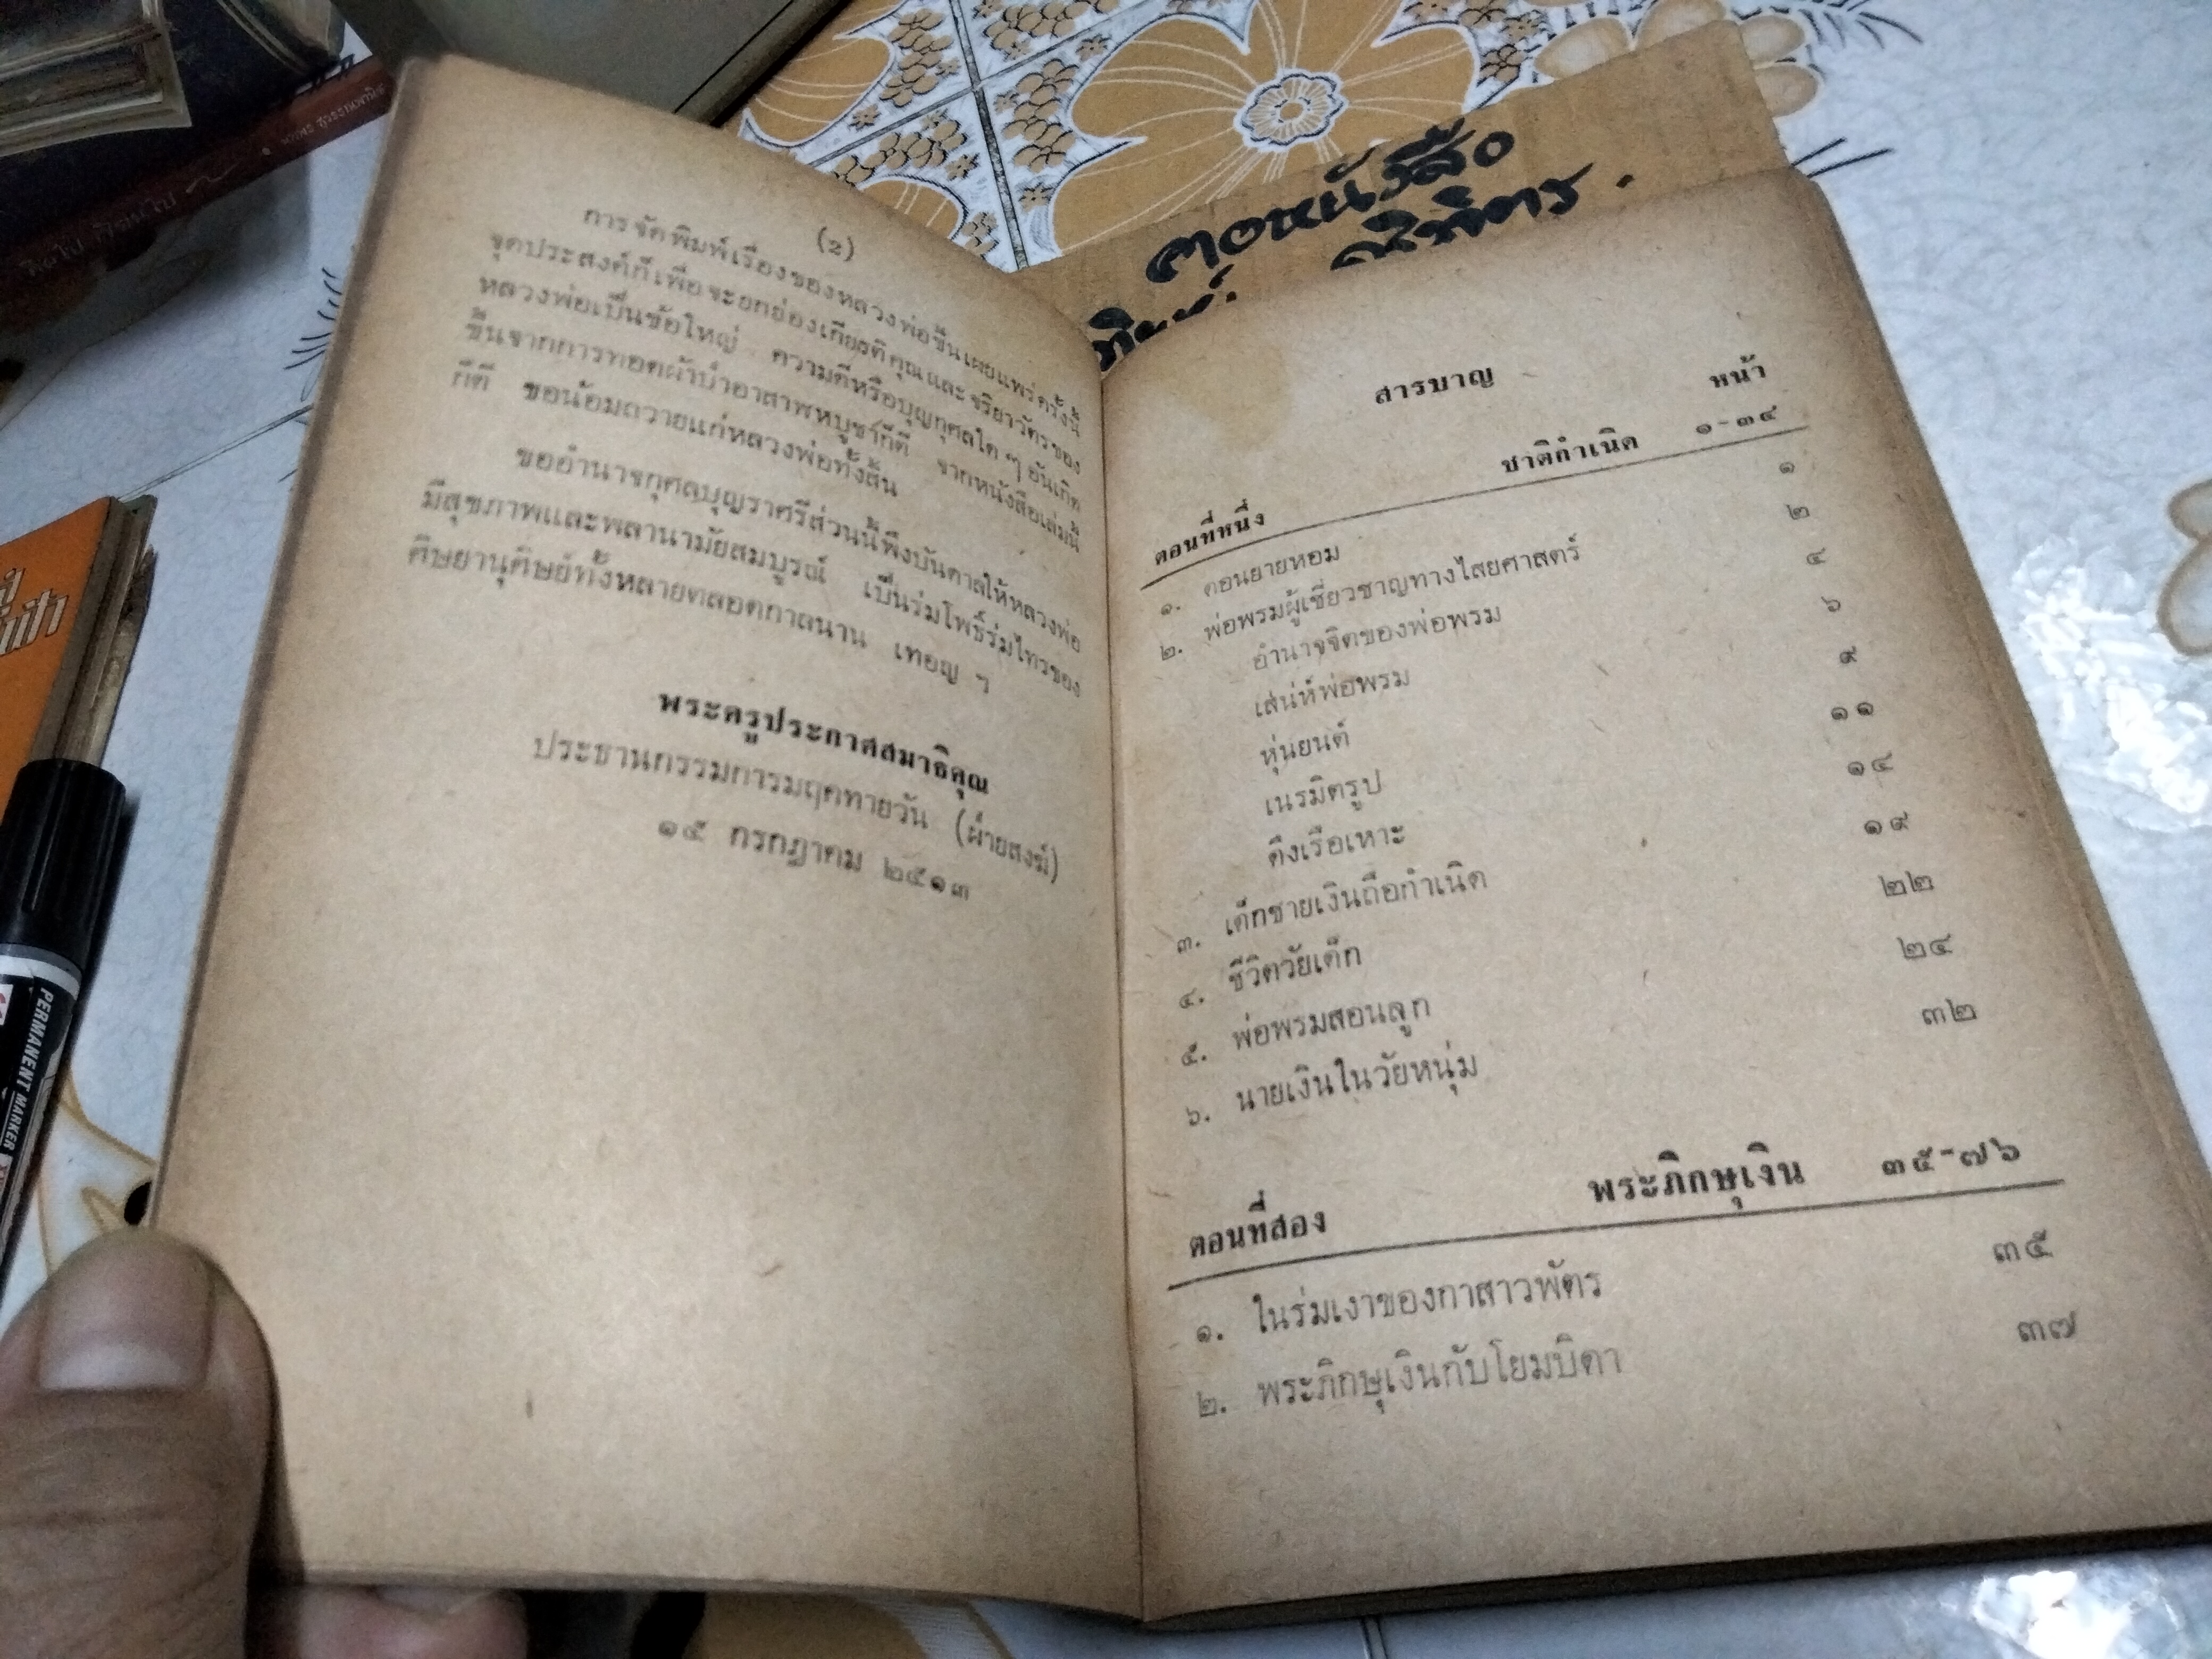 (๒)
การจัดพิมพ์เรื่องของหลวงพ่อขึ้นเผยแพร่ครั้งนี้
จุดประสงค์ก็เพื่อจะยกย่องเกียรติคุณและจริยาวัตรของ
หลวงพ่อเป็นข้อใหญ่ ความดีหรือบุญกุศลใด ๆ อันเกิด
ขึ้นจากการทอดผ้าป่าอาสาฬหบูชาก็ดี จากหนังสือเล่มนี้
ก็ดี ขอน้อมถวายแก่หลวงพ่อทั้งสิ้น
ขออำนาจกุศลบุญราศรีส่วนนี้พึงบันดาลให้หลวงพ่อ
มีสุขภาพและพลานามัยสมบูรณ์ เป็นร่มโพธิ์ร่มไทรของ
ศิษยานุศิษย์ทั้งหลายตลอดกาลนาน เทอญ ฯ
พระครูประกาศสมาธิคุณ
ประธานกรรมการมฤคทายวัน (ฝ่ายสงฆ์)
๑๕ กรกฎาคม ๒๕๑๓
สารบาญ
หน้า
ตอนที่หนึ่ง ชาติกำเนิด ๑-๓๔
๑. ดอนยายหอม ๑
๒. พ่อพรมผู้เชี่ยวชาญทางไสยศาสตร์ ๒
อำนาจจิตของพ่อพรม ๔
เสน่ห์พ่อพรม ๖
หุ่นยนต์ ๙
เนรมิตรูป ๑๑
ดึงเรือเหาะ ๑๔
๓. เด็กชายเงินถือกำเนิด ๑๙
๔. ชีวิตวัยเด็ก ๒๒
๕. พ่อพรมสอนลูก ๒๔
๖. นายเงินในวัยหนุ่ม ๓๒
ตอนที่สอง พระภิกษุเงิน ๓๕-๗๖
๑. ในร่มเงาของกาสาวพัตร ๓๕
๒. พระภิกษุเงินกับโยมบิดา ๓๗
คอหนังสือ
PERMANENT MARKER